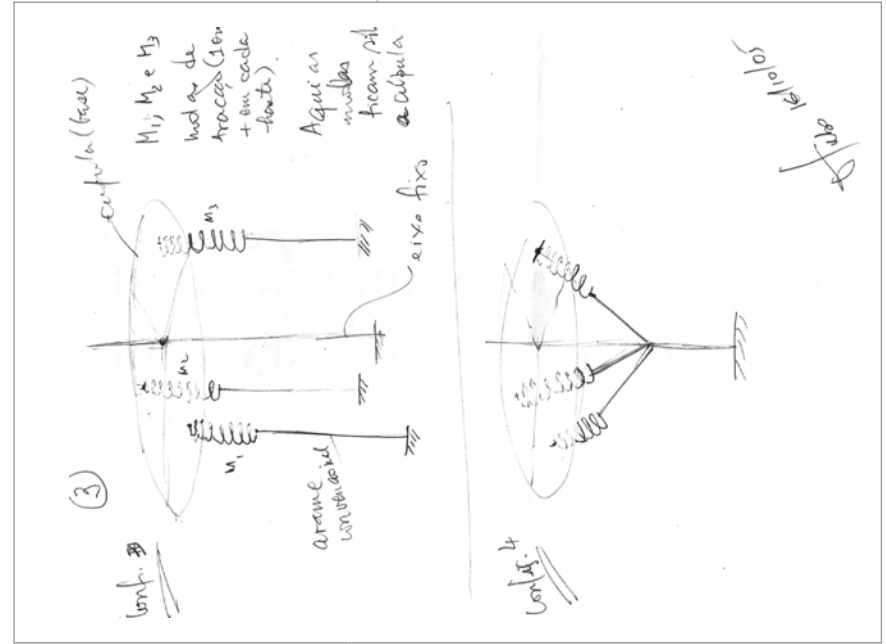 (3)
Conf. 3
cúpula (base)
M₁, M₂ e M₃
molas de
tração (10m
+ em cada
haste).
Aqui as
molas
ficam sob
a cúpula
M₃
M₂
M₁
eixo fixo
arame
convencional
Config. 4
16/10/05